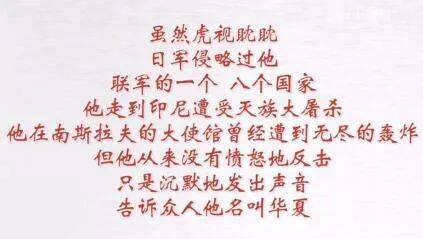 虽然虎视眈眈
日军侵略过他
联军的一个 八个国家
他走到印尼遭受灭族大屠杀
他在南斯拉夫的大使馆曾经遭到无尽的轰炸
但他从来没有愤怒地反击
只是沉默地发出声音
告诉众人他名叫华夏